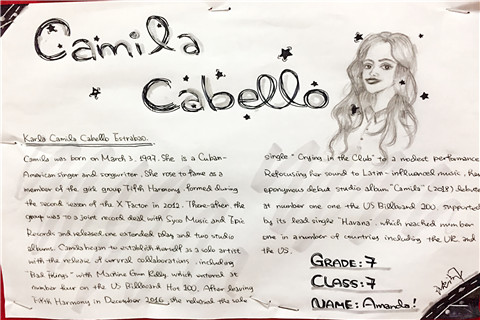 Camila
Cabello
Karla Camila Cabello Estrabao.
Camila was born on March 3, 1997. She is a Cuban-
American singer and songwriter. She rose to fame as a
member of the girl group Fifth Harmony, formed during
the second season of the X Factor in 2012. There-after the
group was to a joint record deal with Syco Music and Epic
Records and released one extended play and two studio
albums. Camila began to establish herself as a solo artist
with the release of several collaborations, including
"Bad Things" with Machine Gun Kelly, which entered at
number four on the US Billboard Hot 100. After leaving
Fifth Harmony in December 2016, she released the solo
single "Crying in the Club" to a modest performance
Refocusing her sound to Latin-influenced music, her
eponymous debut studio album "Camila" (2018) debuted
at number one one the US Billboard 200, supported
by its lead single "Havana", which reached number
one in a number of countries including the UK and
the US.
GRADE: 7
CLASS: 7
NAME: Amanda!